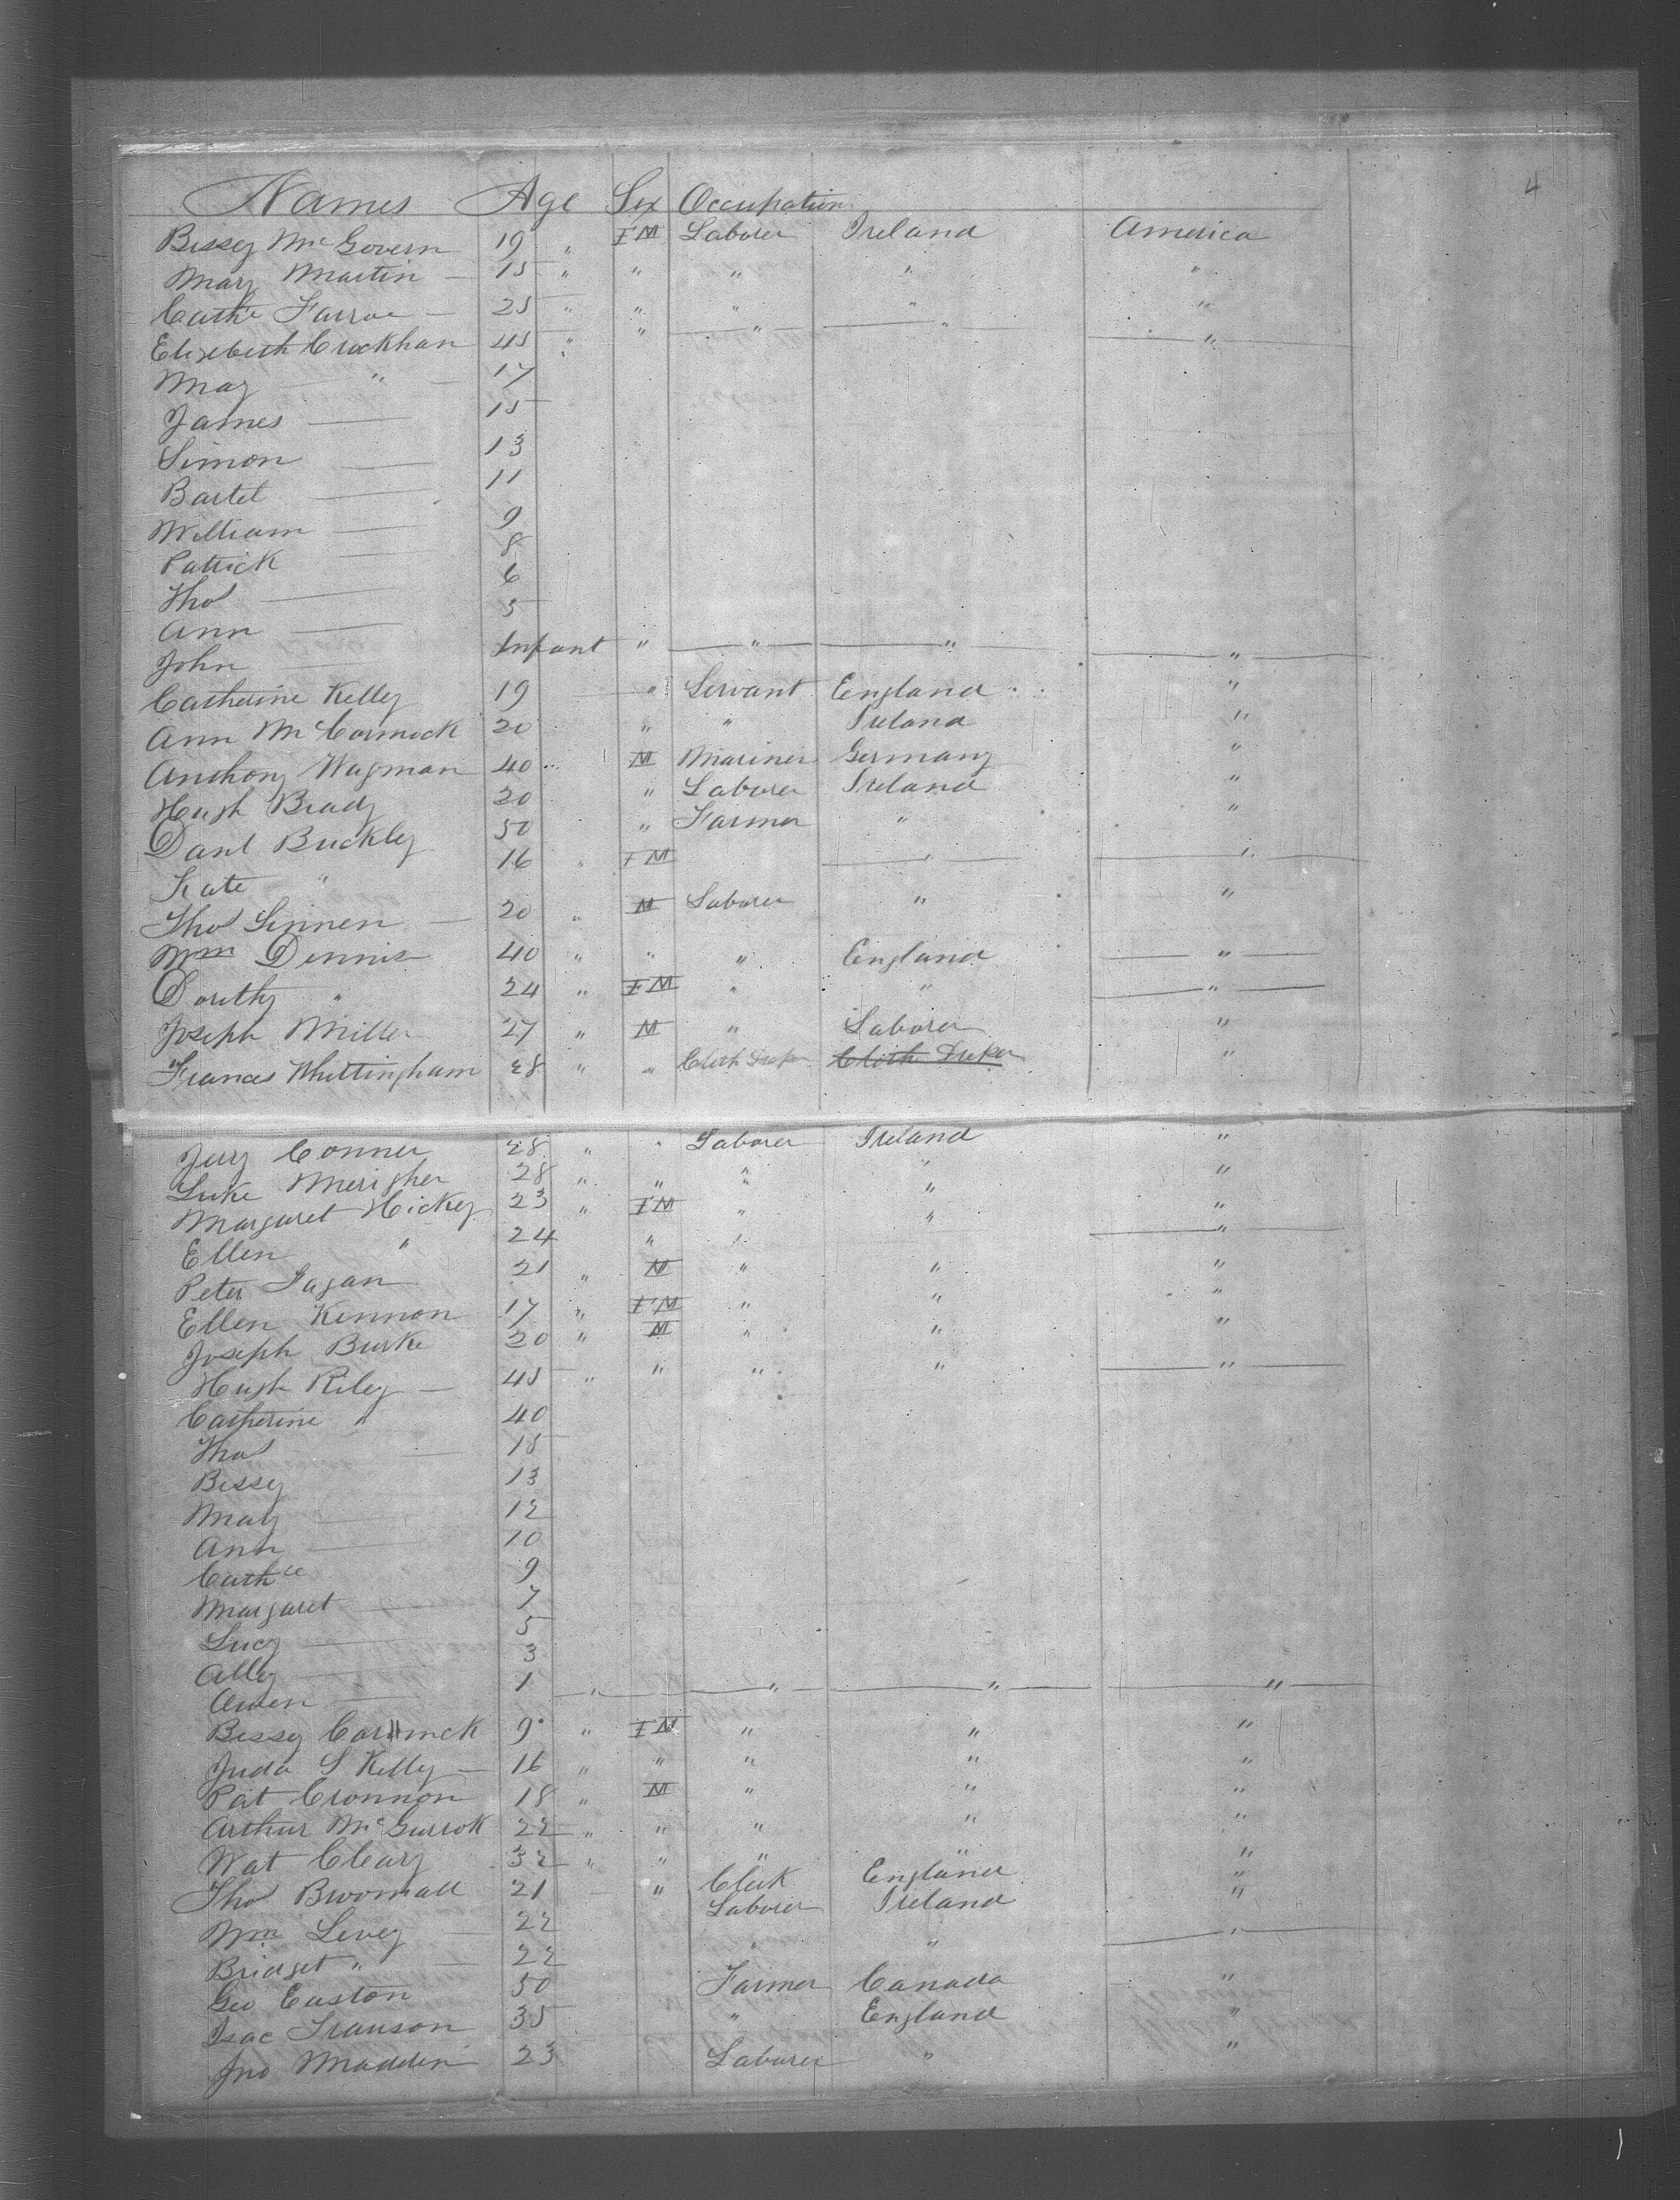 4
Names Age Sex Occupation
Bissey McGovern 19 " FM Laborer Ireland America
Mary Martin — 15 " " " " "
Cathe Farroe — 25 " " " " "
Elizebeth Crockhan 45 " " " " "
May " 17
James — 15
Simon — 13
Bartel — 11
William — 9
Patrick — 8
Thos — 6
Ann — 5
John — Infant " " " "
Catherine Kelly 19 " Servant England "
Ann McCormock 20 " " Ireland "
Anthony Wagman 40 " M Mariner Germany "
Hugh Brady 20 " Laborer Ireland "
Danl Buckley 50 " Farmer " "
Kate " 16 " FM " "
Thos Linnen — 20 " M Laborer " "
Wm Dennis 40 " " " England "
Dorithy " 24 " FM " " "
Joseph Miller 27 " M " Laborer "
Frances Whittingham 28 " " Cloth Dreker Cloth Dreker "
Jery Conner 28 " " Laborer Ireland "
Luke Merigher 28 " " " " "
Margaret Hickey 23 " FM " " "
Ellen " 24 " " " "
Peter Fagan 21 " M " " "
Ellen Kennon 17 " FM " " "
Joseph Burke 20 " M " " "
Hugh Riley — 45 " " " " "
Catherine " 40
Thos — 15
Bissey 13
Mary — 12
Ann — 10
Cathe 9
Margaret — 7
Lucy — 5
Ally — 3
Owen — 1 " " " "
Bissey Carmick 9 " FM " " "
Juda S Kelly — 16 " " " " "
Pat Cronnon 18 " M " " "
Arthur McGurrok 22 " " " " "
Wat Cleary 32 " " " " "
Thos Broomall 21 — " Clerk England "
Wm Levey — 22 Laborer Ireland "
Bridget " — 22 " " "
Geo Easton 50 Farmer Canada "
Isac Transon 35 " England "
Jno Madden 23 Laborer " "